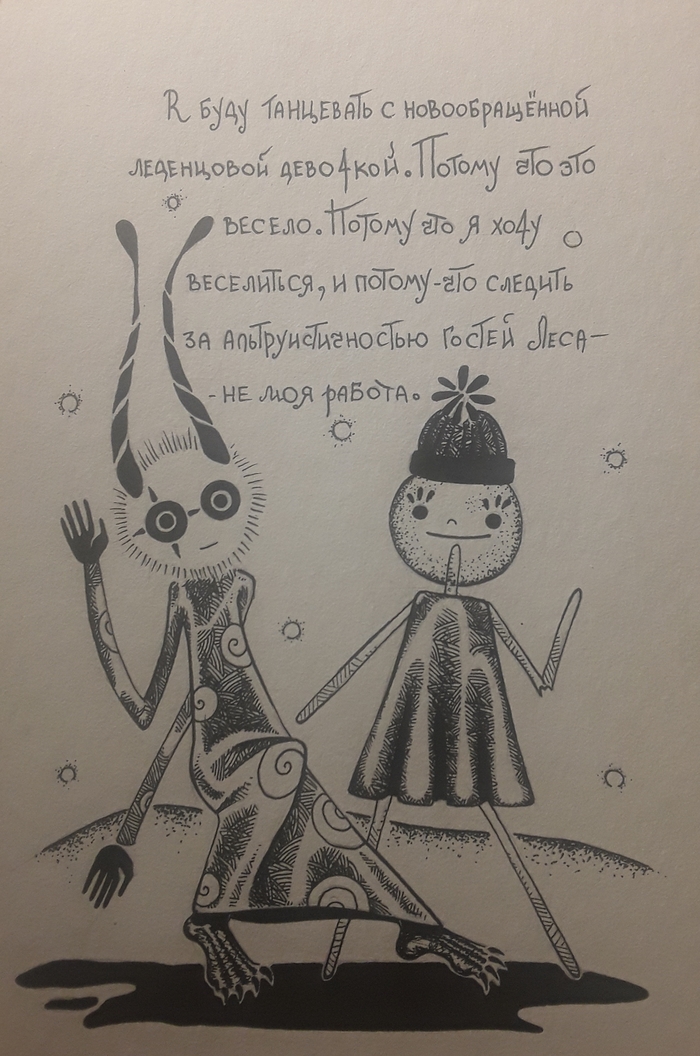 Я буду танцевать с новообращённой
леденцовой девочкой. Потому что это
весело. Потому что я хочу
веселиться, и потому-что следить
за альтруистичностью гостей Леса-
-не моя работа.